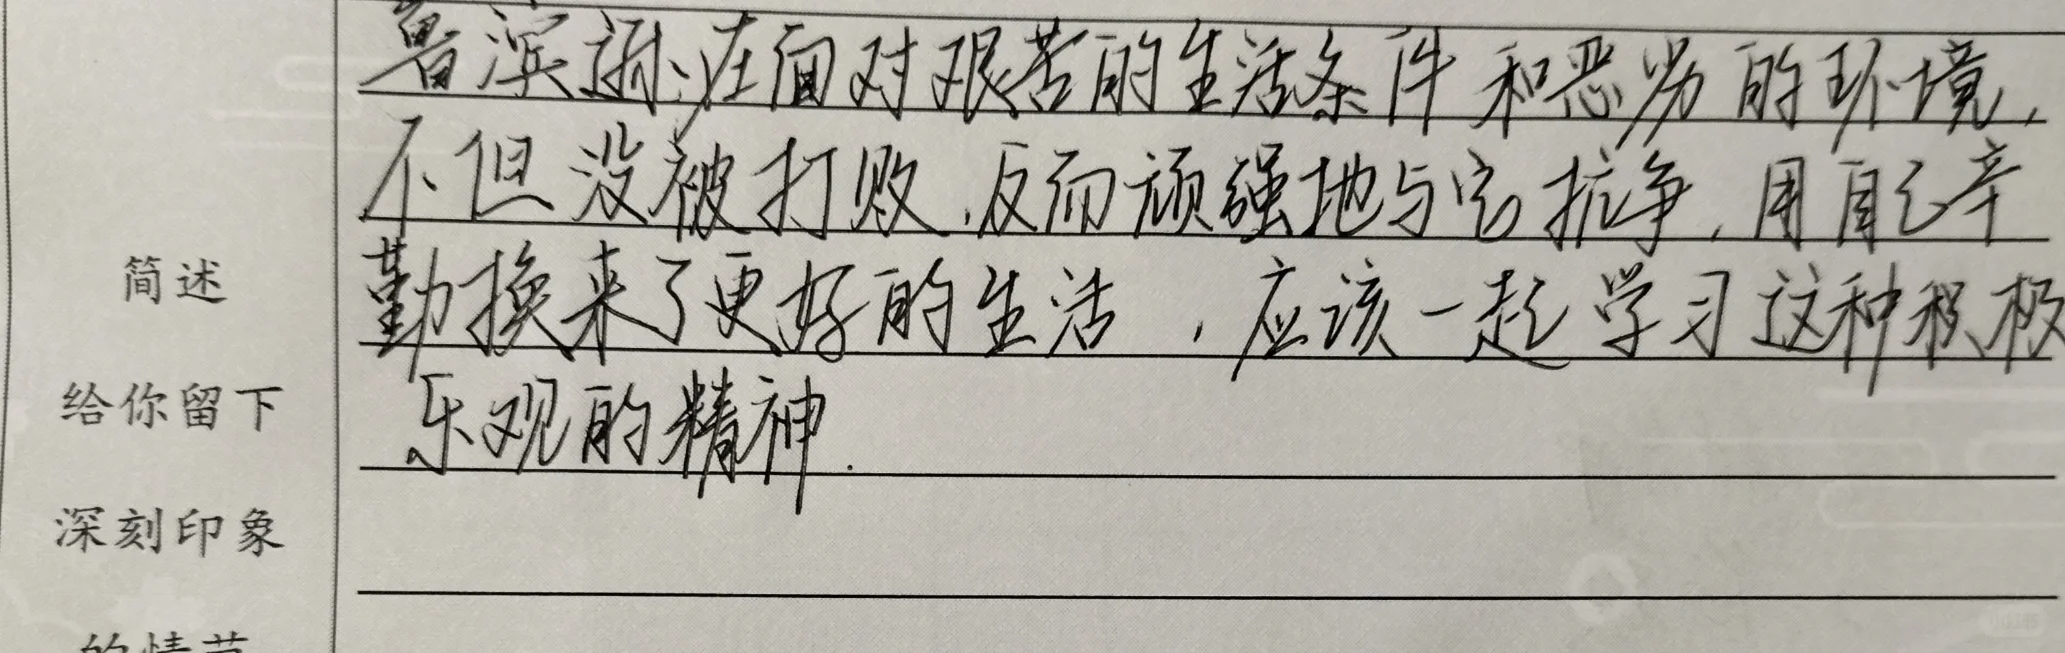 鲁滨逊在面对艰苦的生活条件和恶劣的环境,
不但没被打败,反而顽强地与它抗争,用自己辛
勤换来了更好的生活,应该一起学习这种积极
乐观的精神.
简述
给你留下
深刻印象
的情节